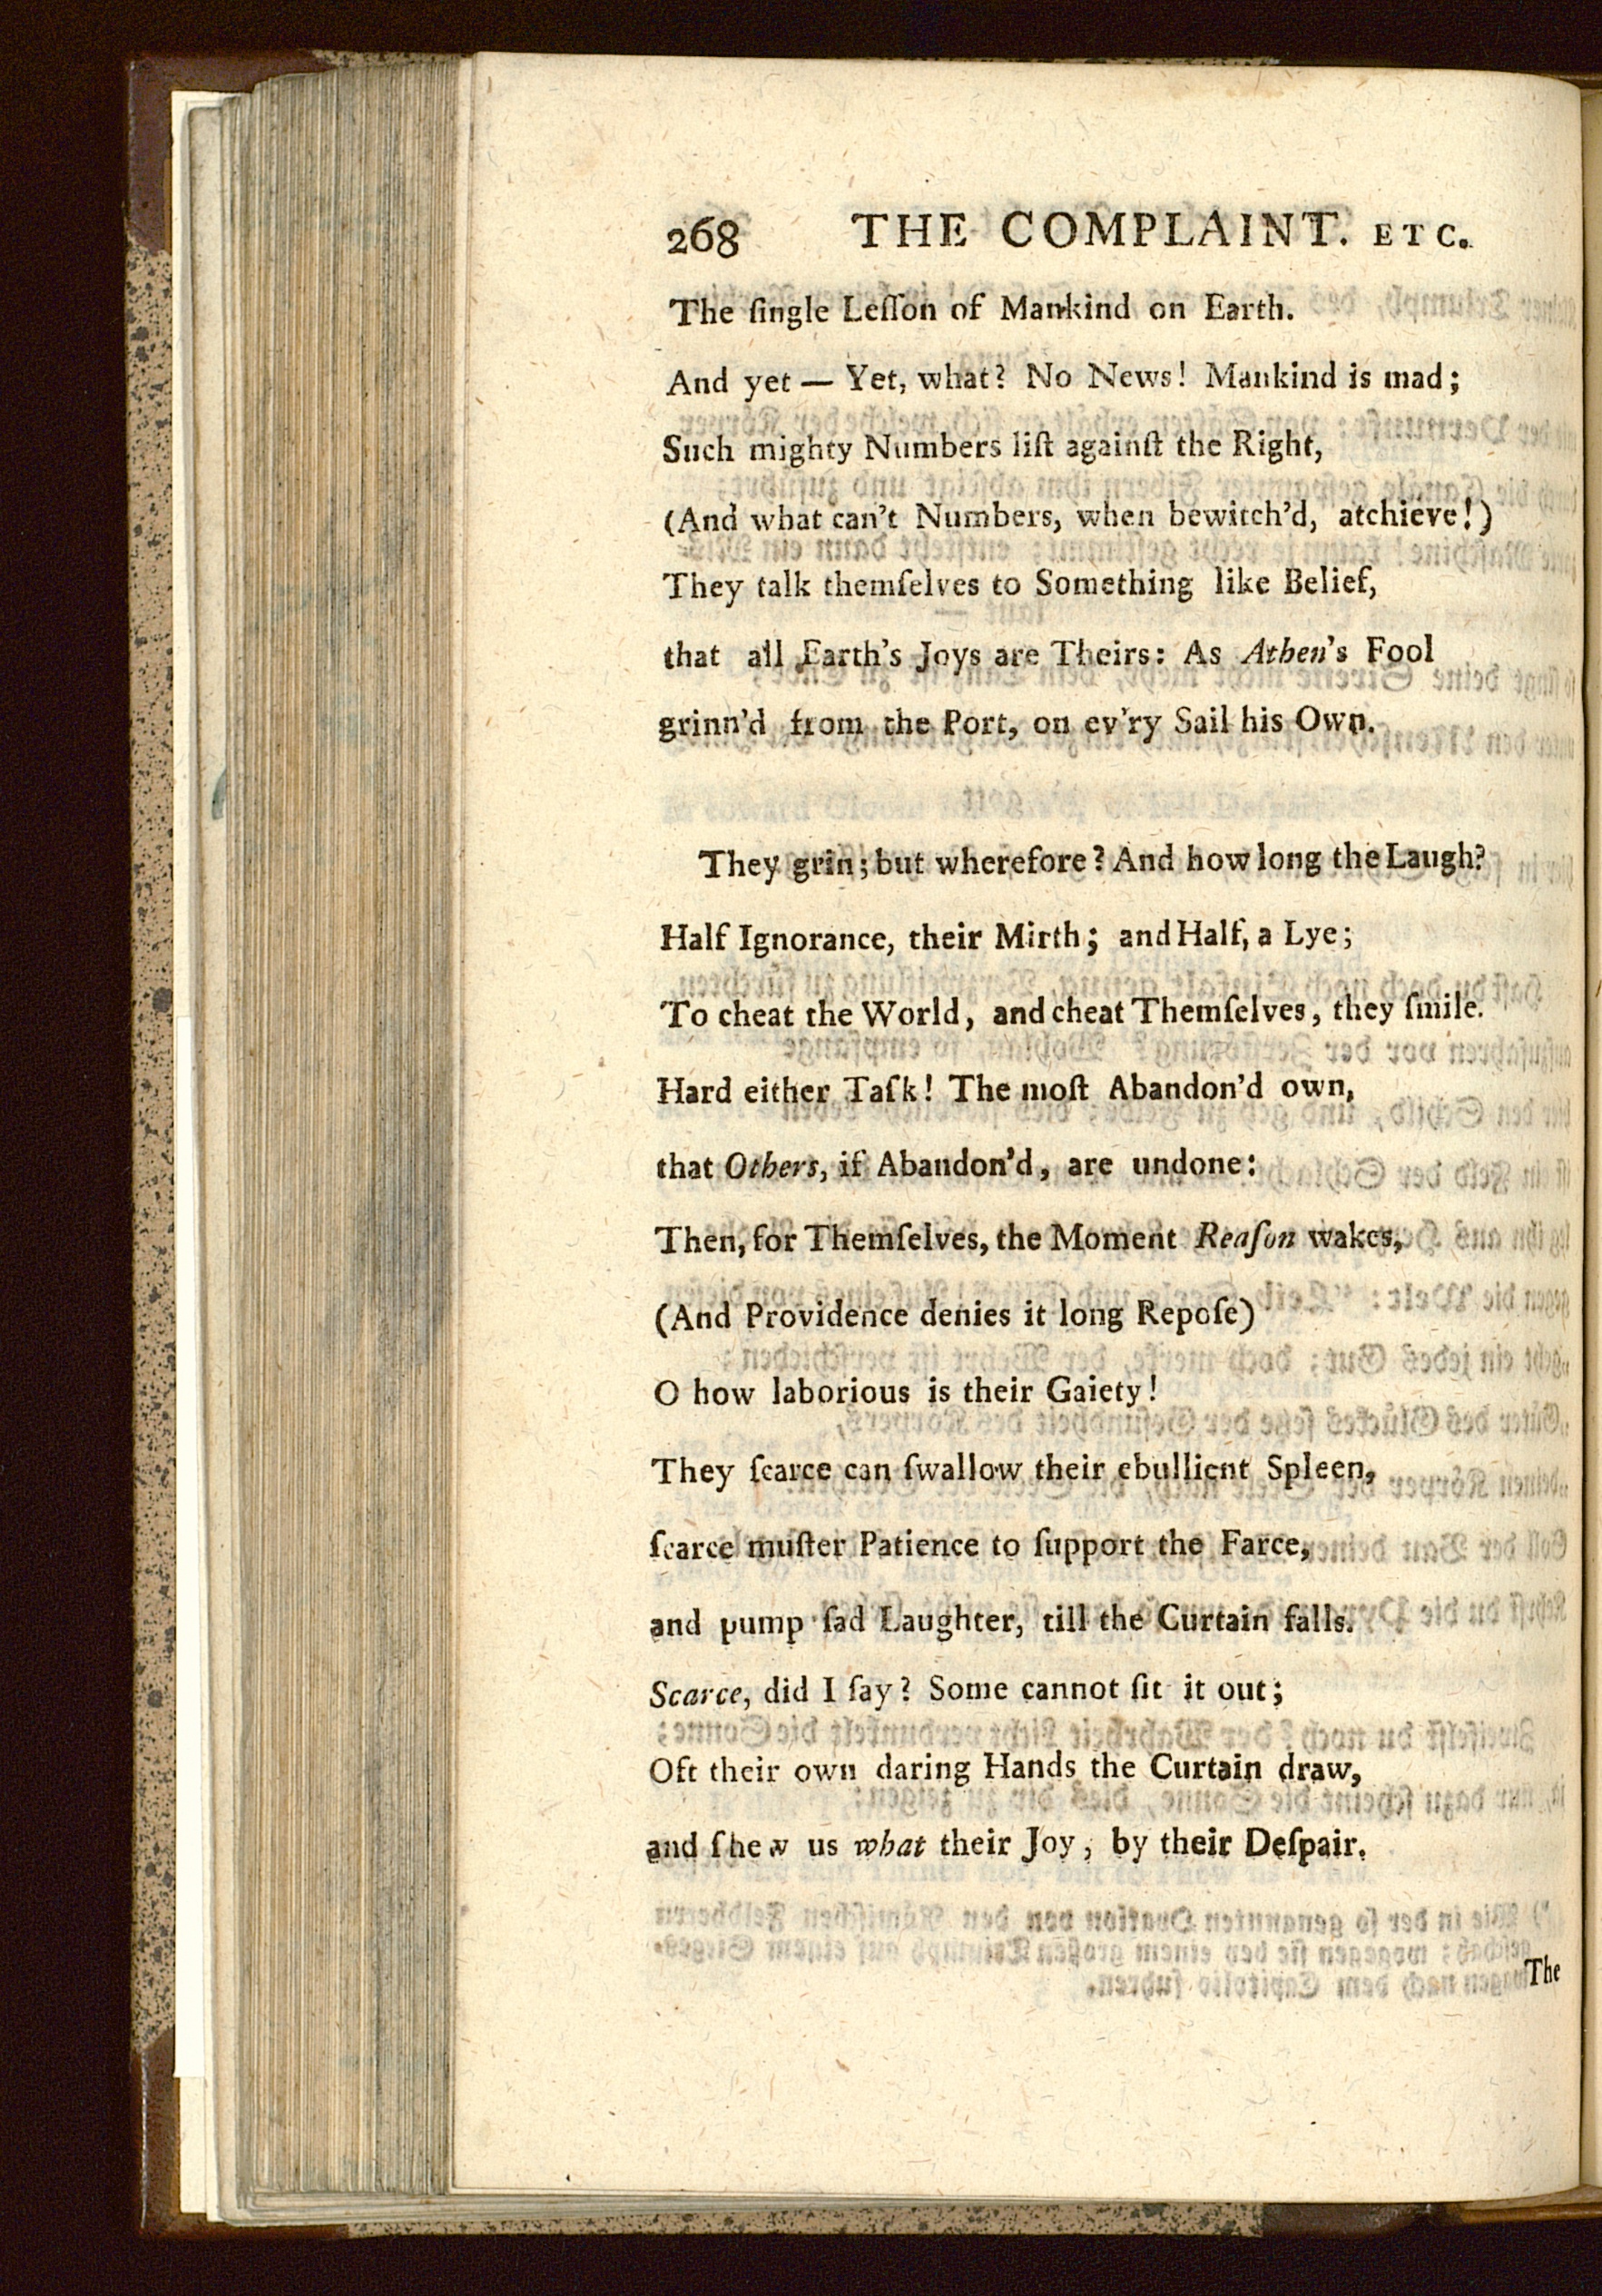 268 THE COMPLAINT. ETC.
The ſingle Leſſon of Mankind on Earth.
And yet — Yet, what? No News! Mankind is mad;
Such mighty Numbers liſt againſt the Right,
(And what can't Numbers, when bewitch'd, atchieve!)
They talk themſelves to Something like Belief,
that all Earth's Joys are Theirs: As Athen's Fool
grinn'd from the Port, on ev'ry Sail his Own.
They grin; but wherefore? And how long the Laugh?
Half Ignorance, their Mirth; and Half, a Lye;
To cheat the World, and cheat Themſelves, they ſmile.
Hard either Taſk! The moſt Abandon'd own,
that Others, if Abandon'd, are undone:
Then, for Themſelves, the Moment Reaſon wakes,
(And Providence denies it long Repoſe)
O how laborious is their Gaiety!
They ſcarce can ſwallow their ebullient Spleen,
ſcarce muſter Patience to ſupport the Farce,
and pump ſad Laughter, till the Curtain falls.
Scarce, did I ſay? Some cannot ſit it out;
Oft their own daring Hands the Curtain draw,
and ſhew us what their Joy, by their Deſpair.
The